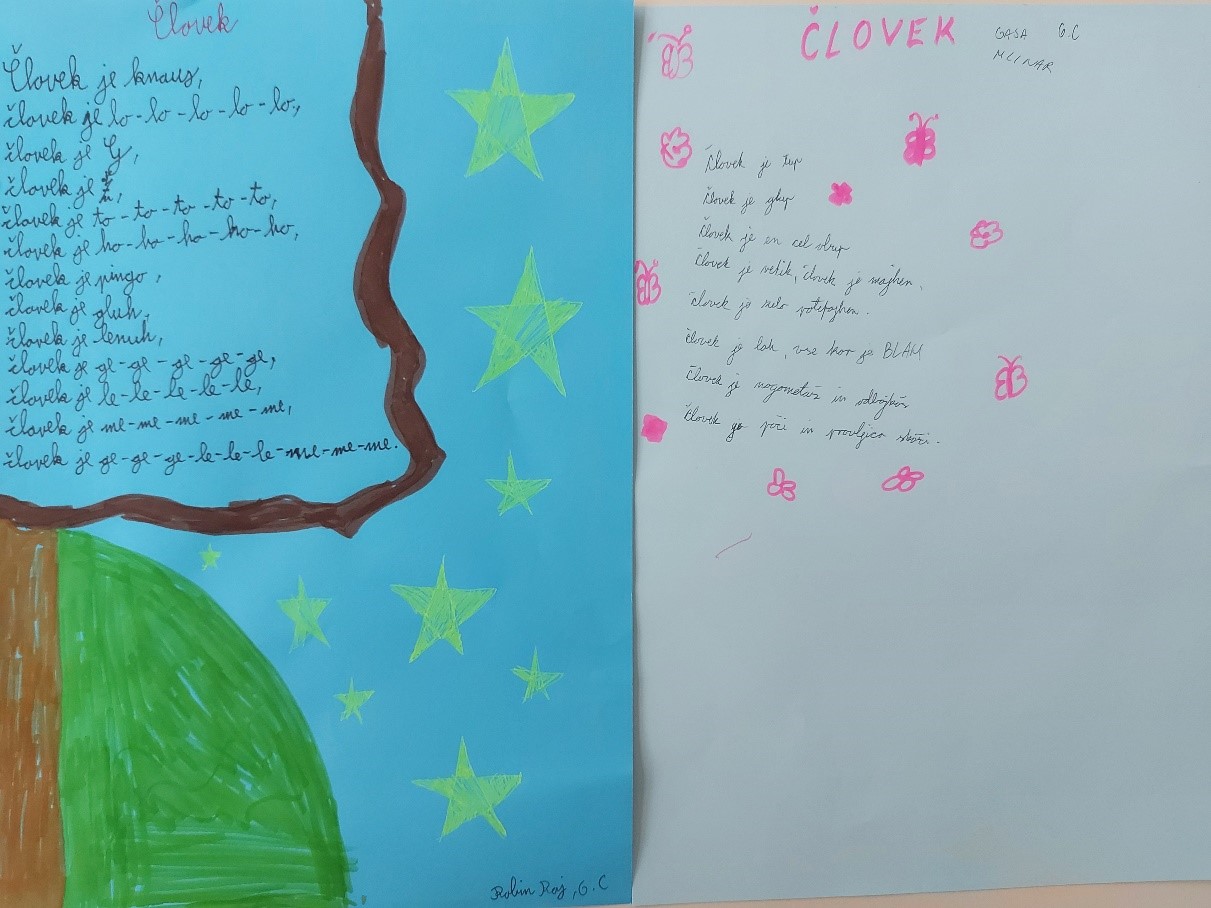 Človek
Človek je knaus,
človek je lo-lo-lo-lo-lo,
človek je
človek je
človek je to-to-to-to-to,
človek je ho-ho-ho-ho-ho,
človek je pingo,
človek je gluh,
človek je lenuh,
človek je ge-ge-ge-ge-ge,
človek je le-le-le-le-le,
človek je me-me-me-me-me,
človek je ge-ge-ge-le-le-le-me-me-me.
Robin Roj, 6.C
ČLOVEK
GAŠA 6.C
MLINAR
Človek je tup
Človek je glup
Človek je en cel
Človek je velik, človek je majhen,
človek je zelo potepajhen.
človek je lah, vse kar je BLAH
Človek je nogometaš in odbojkaš
Človek go piči in pravljica skoči.